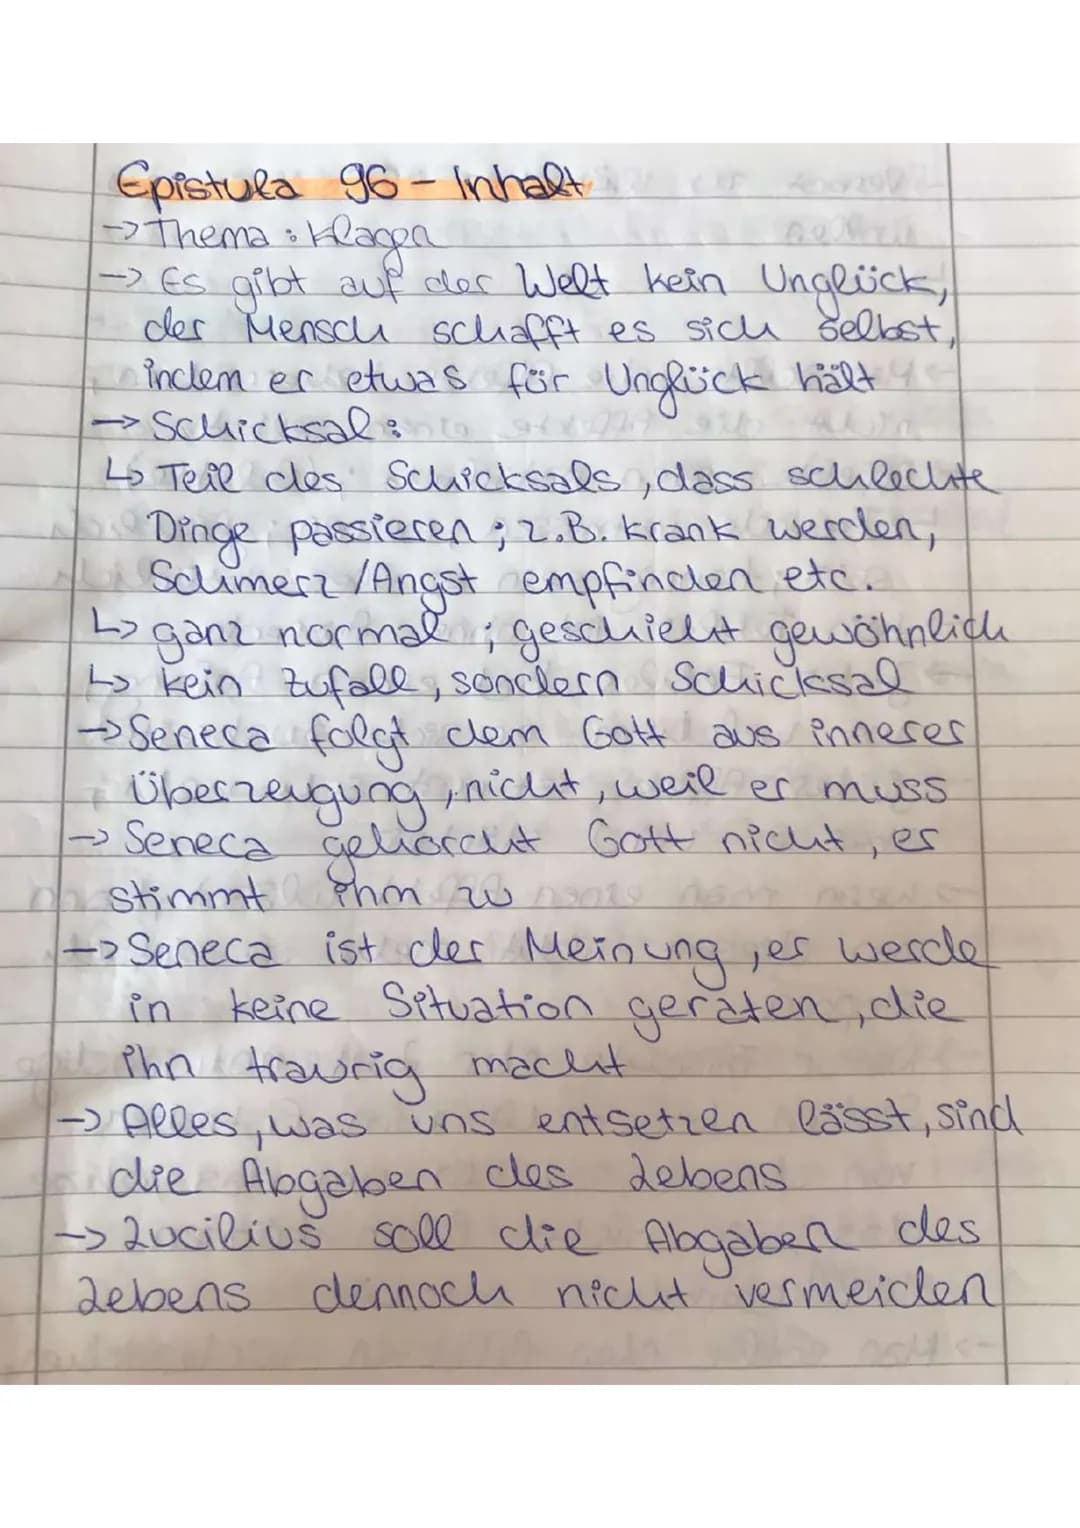 Epistula 96 - Inhalt
→ Thema: Klagen
→ Es gibt auf der Welt kein Unglück,
der Mensch schafft es sich selbst,
indem er etwas für Unglück hält
→ Schicksal:
↳ Teil des Schicksals, dass schlechte
Dinge passieren; z.B. krank werden,
Schmerz /Angst empfinden etc.
↳ ganz normal; geschieht gewöhnlich
↳ kein Zufall, sondern Schicksal
→ Seneca folgt dem Gott aus innerer
Überzeugung, nicht, weil er muss
→ Seneca gehorcht Gott nicht, er
stimmt ihm zu
→ Seneca ist der Meinung, er werde
in keine Situation geraten, die
ihn traurig macht
→ Alles, was uns entsetzen lässt, sind
die Abgaben des Lebens
→ Lucilius soll die Abgaben des
Lebens dennoch nicht vermeiden